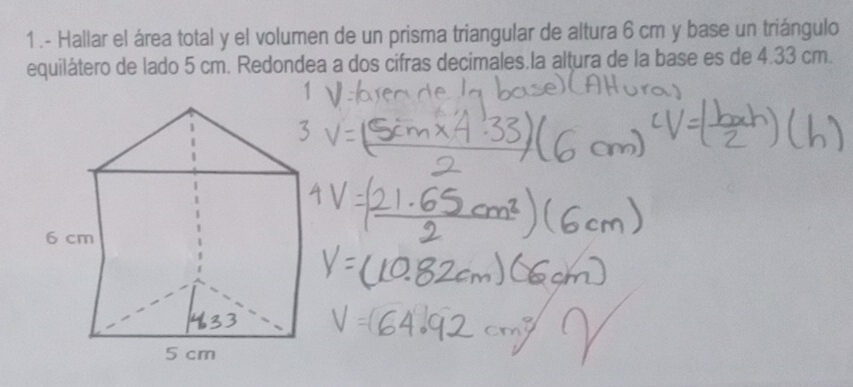 1.- Hallar el área total y el volumen de un prisma triangular de altura 6 cm y base un triángulo
equilátero de lado 5 cm. Redondea a dos cifras decimales.la altura de la base es de 4.33 cm.
1 V=(area de la base)(Altura)
3 V=(5cm x 4.33/2)(6 cm) V=(bxh/2)(h)
4 V=(21.65cm²/2)(6cm)
V=(10.82cm)(6cm)
V=(64.92 cm³
6 cm
4.33
5 cm